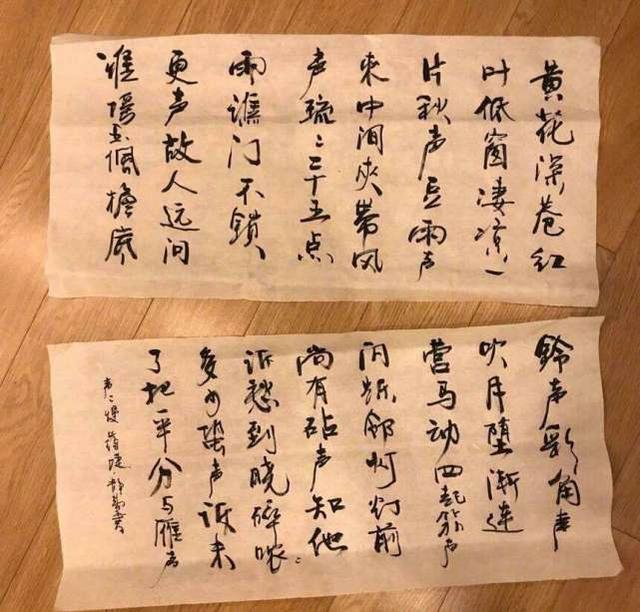 黄花深巷红
叶低窗凄凉一
片秋声豆雨声
来中间夹带风
声疏疏二十五点
雨谯门不锁
更声故人远问
谁摇玉佩檐底
铃声彩角声
吹月堕渐连
营马动四起笳声
闪烁邻灯灯前
尚有砧声知他
诉愁到晓碎哝哝
多少蛩声诉未
了把一半分与雁声
声声慢 蒋捷 静 书